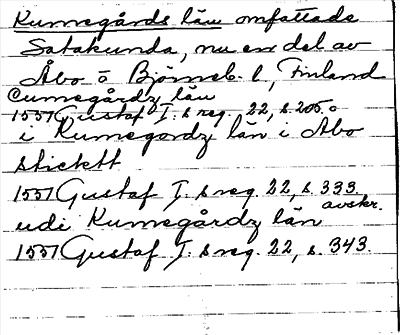 Kumegårds län omfattade
Satakunda, nu en del av
Åbo o Björneb. l, Finland
Cumegårdz län
1557 Gustaf I:s reg. 22, s. 205.
i Kumegordz län i Åbo
stickett
1557 Gustaf I:s reg. 22, s. 333.
avskr.
udi Kumegårdz län
1557 Gustaf I:s reg. 22, s. 343.